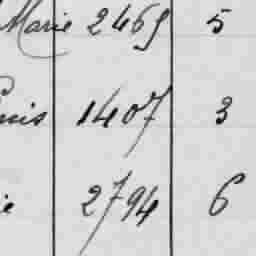 Marie 2469 5
1407 3
2794 6